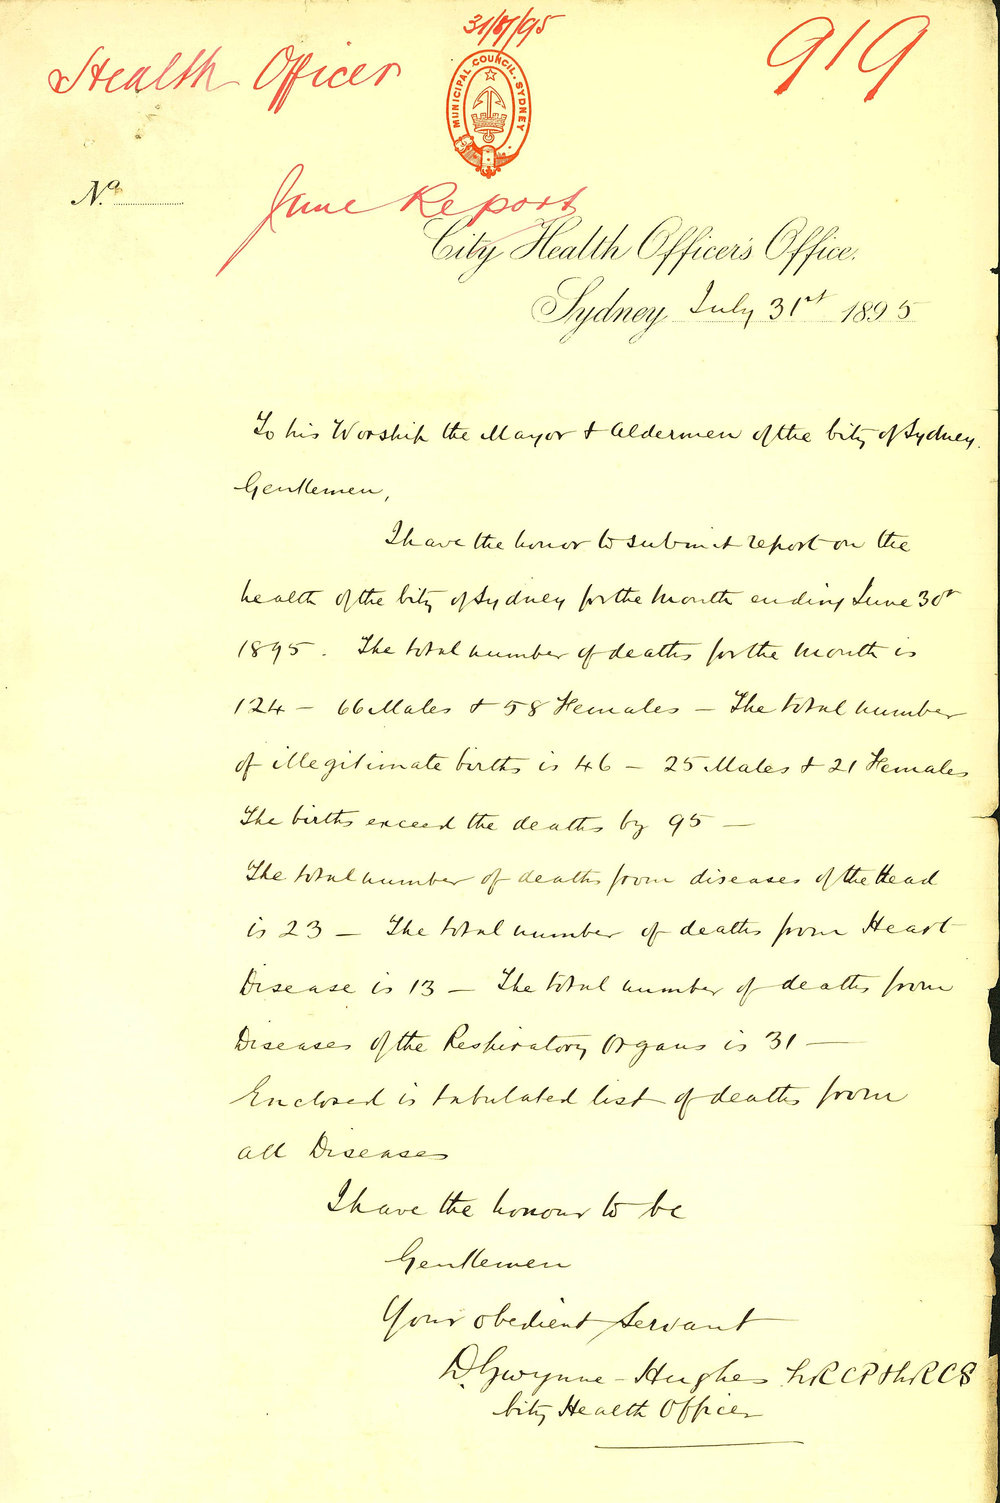 31/8/95
Health Officer
919
MUNICIPAL COUNCIL. SYDNEY
No.
June Report
City Health Officer's Office.
Sydney July 31st 1895
To his Worship the Mayor & Aldermen of the City of Sydney.
Gentlemen,
I have the honor to submit report on the
health of the City of Sydney for the month ending June 30th
1895. The total number of deaths for the month is
124 – 66 Males & 58 Females – The total number
of illegitimate births is 46 – 25 Males & 21 Females
The births exceed the deaths by 95 –
The total number of deaths from diseases of the Head
is 23 – The total number of deaths from Heart
Disease is 13 – The total number of deaths from
Diseases of the Respiratory Organs is 31 –
Enclosed is tabulated list of deaths from
all Diseases
I have the honour to be
Gentlemen
Your obedient Servant
D. Gwynne-Hughes LRCP & LRCS
City Health Officer